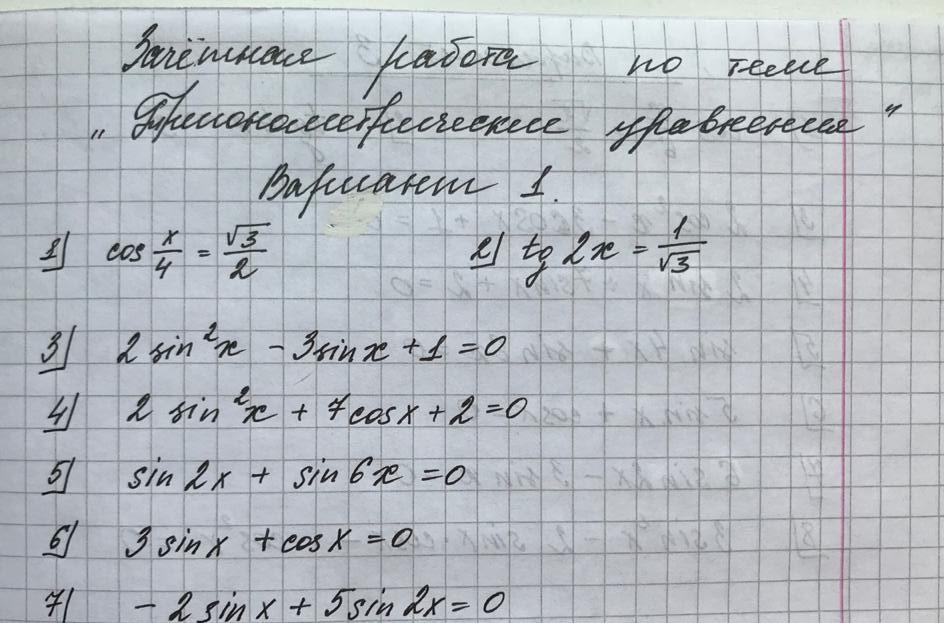 Зачётная работа по теме
„Тригонометрические уравнения"
Вариант 1.
1) cos x/4 = √3/2 2) tg 2x = 1/√3
3) 2 sin²x - 3 sin x + 1 = 0
4) 2 sin²x + 7 cos x + 2 = 0
5) sin 2x + sin 6x = 0
6) 3 sin x + cos x = 0
7) - 2 sin x + 5 sin 2x = 0